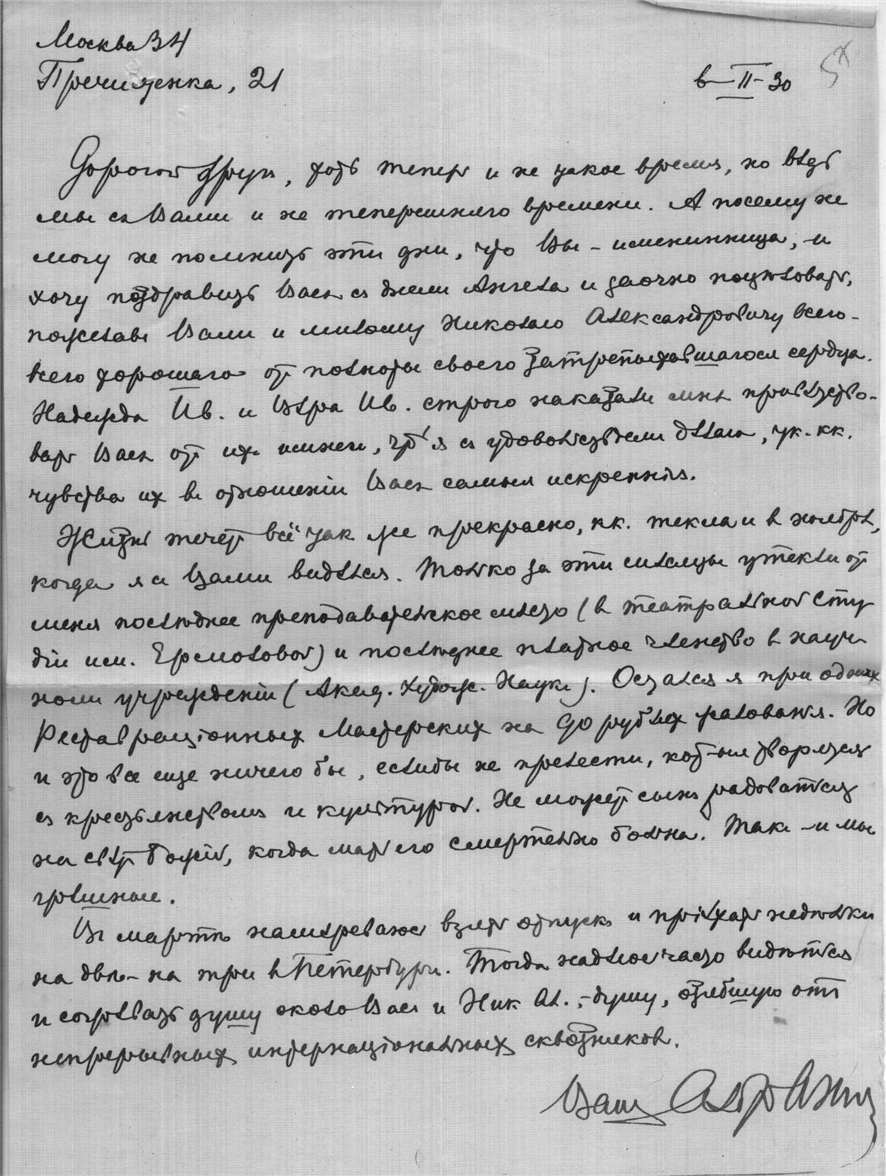 Москва 34
Пречистенка, 21
6–II–30
Дорогой друг, хоть теперь и не такое время, но вѣдь
мы съ Вами и не теперешняго времени. А посему не
могу не помнить эти дни, что Вы – именинница, и
хочу поздравить Васъ съ днемъ Ангела и заочно поцѣловать,
пожелавъ Вамъ и милому Николаю Александровичу всего–
всего хорошаго отъ полноты своего затрепыхавшагося сердца.
Надежда Ив. и Вѣра Ив. строго наказали мнѣ привѣтство–
вать Васъ отъ ихъ имени, что я съ удовольствіемъ дѣлаю, т.к.
чувства ихъ въ отношеніи Васъ самыя искреннія.
Жизнь течетъ всё такъ же прекрасно, кк. текла и в ноябрѣ,
когда я съ Вами видѣлся. Только за эти мѣсяцы утекли отъ
меня послѣднее преподавательское мѣсто (в театральной сту
діи им. Ермоловой) и послѣднее платное членство в науч–
номъ учрежденіи (Акад. Худож. Наукъ). Остался я при однихъ
Реставраціонныхъ Мастерскихъ на 90 рубляхъ жалованія. Но
и это все еще ничего бы, еслибы не прелести, кот–ыя творятся
съ крестьянствомъ и культурой. Не можетъ сынъ радоваться
на свѣтъ Божій, когда мать его смертельно больна. Такъ – и мы
грѣшные.
Въ мартѣ намѣреваюсь взять отпускъ и пріѣхать недѣльки
на двѣ – на три в Петербургъ. Тогда надѣюсь часто видѣться
и согрѣвать душу около Васъ и Ник Ал., – душу, озябшую отъ
непрерывныхъ интернаціональныхъ сквозняковъ.
Вашъ